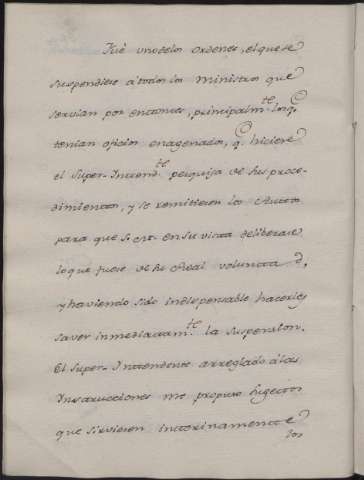 Fué uno de los ordenes, el que se
suspendiese á todos los Ministros que
servian por entonces, principalmte. los q.
tenian oficios enagenados, q. hiciere
el Super-Intendte. pesquisa de sus proce-
dimientos, y se remitiesen los Autos
para que S. M. en su vista deliberase
lo que fuese de su Real voluntad,
y haviendo sido indispensable hacerles
saver inmediatamte. la suspension.
El Super-Intendente arreglado á las
Instrucciones me propuso sugetos
que sirviesen interinamente
los